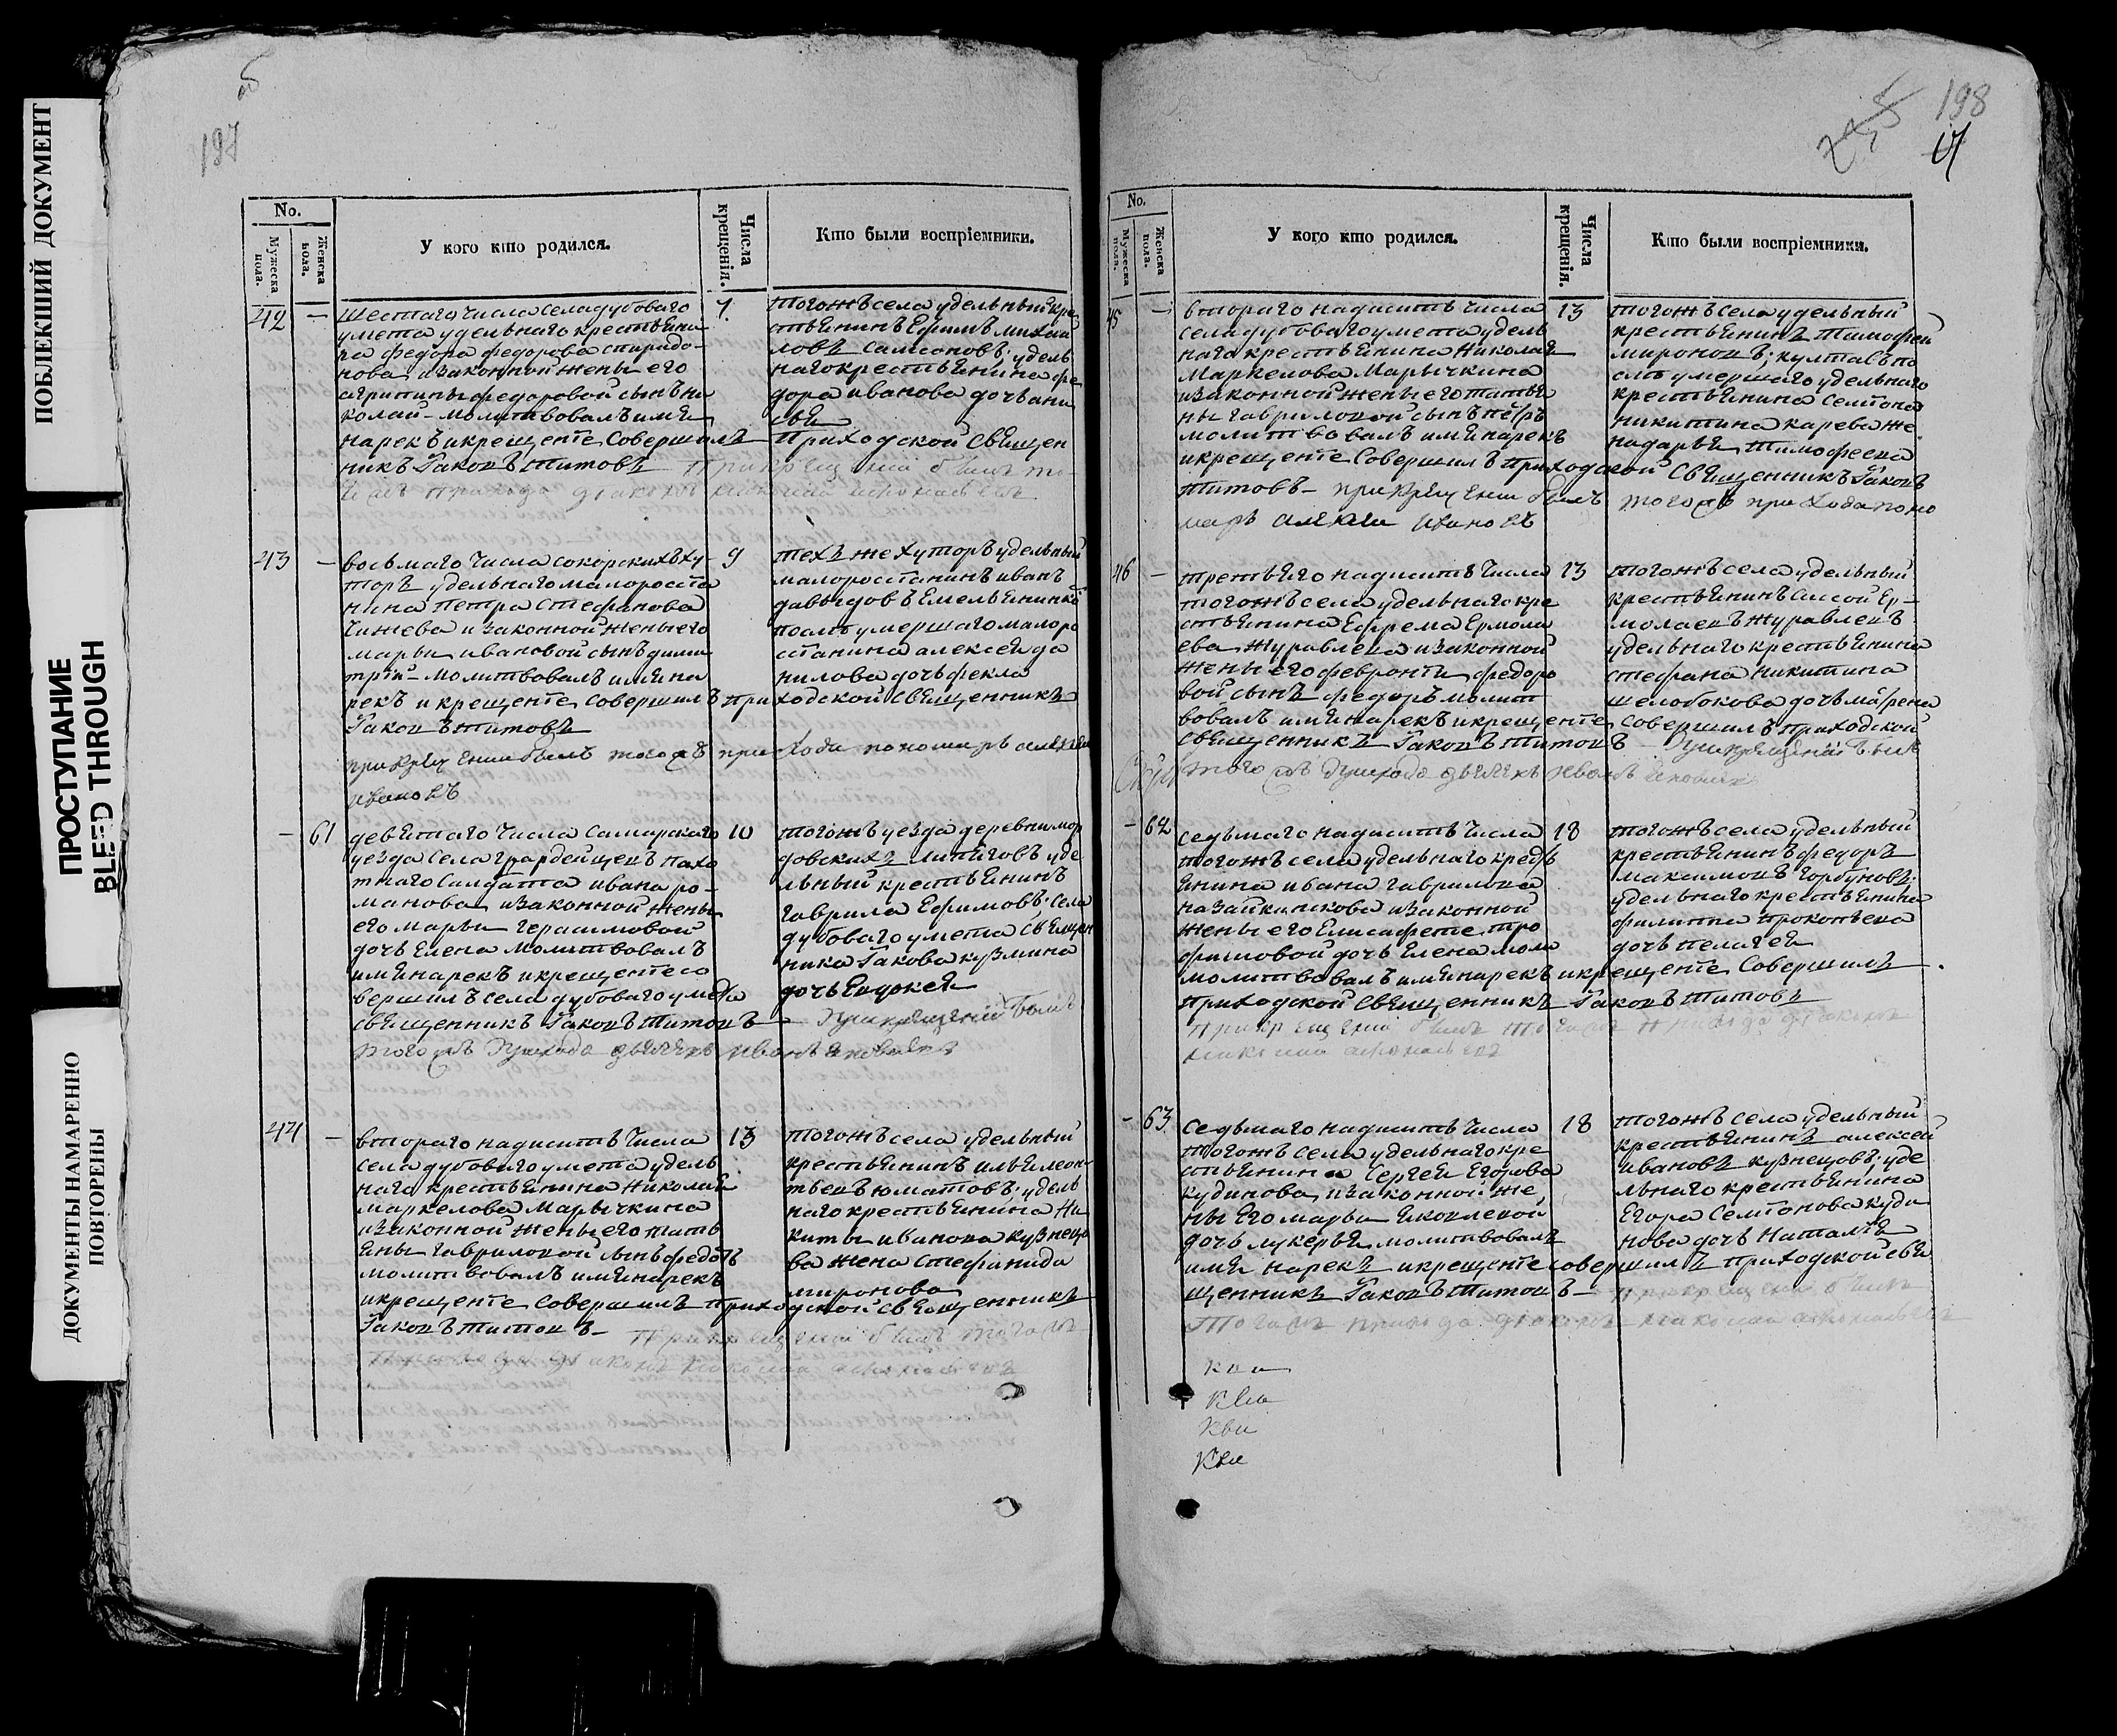 ПОБЛЕКШИЙ ДОКУМЕНТ
ПРОСТУПАНИЕ
BLEED THROUGH
ДОКУМЕНТЫ НАМАРЕННО
ПОВТОРЕНЫ
197
No.
Мужеска пола.
Женска пола.
У кого кто родился.
Числа крещенія.
Кто были воспріемники.
42 — шестаго числа села дубоваго
умета удельнаго крестьяни
на федора федорова спиридо-
нова изаконной жены его
агрипины федоровой сынъ ни
колай - молитвовалъ имя
нарекъ и крещенте совершилъ приходской священ
никъ Гаковъ титовъ при крещении былъ то-
гожъ прихода діаконъ николай афонасьевъ
7.
тогожъ села удельный кре
стьянинъ Ефимъ михаи
ловъ самсоновъ; удель
наго крестьянина фе
дора иванова дочь ани
сья
43 — восьмаго числа сокорскихъ ху-
торъ удельнаго малороссія
нина петра стефанова
чижева и законной жены его
марьи ивановой сынъ дими
трій - молитвовалъ имя на
рекъ и крещенте совершилъ приходской священникъ
Гаковъ титовъ
при крещении былъ тогожъ прихода пономарь алексей
ивановъ
9
техъ же хуторъ удельный
малоросстанинъ иванъ
давыдовъ Емельяненко
поалъ умершаго малоро
станина алексея да
нилова дочь фекла
— 61 девятаго числа самарскаго
уезда села
тнаго салдата ивана ро-
манова изаконной жены
его марьи герасимовой
дочь Елена молитвовалъ
имя нарекъ и крещенте со
вершилъ села дубоваго умета
священникъ Гаковъ титовъ при крещении былъ
тогожъ прихода дьячекъ иванъ яковлевъ
10
тогожъ уезда деревни мор
довскихъ липяговъ уде
льный крестьянинъ
гаврила Ефимовъ; села
дубоваго умета священ
ника Гакова кузмина
дочь Евдокея
44 — втораго надцать числа
села дубоваго умета удель
наго крестьянина николая
маркелова марычкина
изаконной жены его тать
яны гавриловой сынъ федотъ
молитвовалъ имя нарекъ
и крещенте совершилъ приходской священникъ
Гаковъ титовъ - при крещении былъ тогожъ
прихода діаконъ николай афонасьевъ
13
тогожъ села удельный
крестьянинъ илья леон
тьевъ юматовъ; удель
наго крестьянина ни
киты иванова кузнецо
ва жена стефанида
миронова
198
17
No.
Мужеска пола.
Женска пола.
У кого кто родился.
Числа крещенія.
Кто были воспріемники.
45 — втораго надцать числа
села дубоваго умета удель
наго крестьянина николая
маркелова марычкина
изаконной жены его татья
ны гавриловой сынъ петръ
молитвовалъ имя нарекъ
и крещенте совершилъ приходской священникъ Гаковъ
титовъ - при крещении былъ тогожъ прихода поно
марь алексей ивановъ
13
тогожъ села удельный
крестьянинъ тимофей
мироновъ; култаевъ по
алъ умершаго удельнаго
крестьянина семиона
никитина карева же
на дарья тимофеева
46 — третьяго надцать числа
тогожъ села удельнаго кре
стьянина Ефрема Ермола
ева журавлева изаконной
жены его февронти федоро
вой сынъ федоръ молит
вовалъ имя нарекъ и крещенте совершилъ приходской
священникъ Гаковъ титовъ при крещении былъ
тогожъ прихода дьячекъ иванъ яковлевъ
13
тогожъ села удельный
крестьянинъ сысой Ер-
молаевъ журавлевъ
удельнаго крестьянина
стефана никитина
шелобокова дочь матрена
— 62 седьмаго надцать числа
тогожъ села удельнаго кресть
янина ивана гаврилова
изаконной
жены его Елисафете тро
фимовой дочь Елена моли
молитвовалъ имя нарекъ и крещенте совершилъ
приходской священникъ Гаковъ титовъ
при крещении былъ тогожъ прихода діаконъ
николай афонасьевъ
18
тогожъ села удельный
крестьянинъ федоръ
максимовъ горбуновъ;
удельнаго крестьянина
филиппа прокопьева
дочь пелагея
— 63 седьмаго надцать числа
тогожъ села удельнаго кре
стьянина Сергея Егорова
кудинова изаконной же
ны Его марьи яковлевой
дочь лукерья молитвовалъ
имя нарекъ и крещенте совершилъ приходской свя
щенникъ Гаковъ титовъ - при крещении былъ
тогожъ прихода діаконъ николай афонасьевъ
18
тогожъ села удельный
крестьянинъ алексей
ивановъ кузнецовъ; уде
льнаго крестьянина
Егора Семионова куди
нова дочь наталія